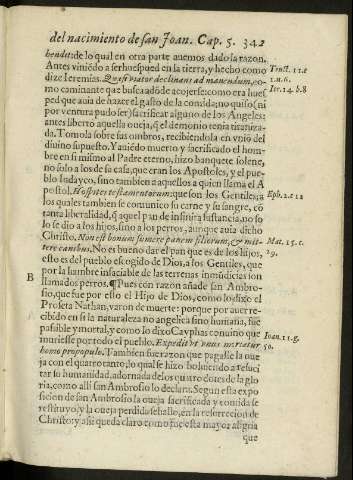 del nacimiento de san Joan. Cap. 5. 342
hendet: de lo qual en otra parte auemos dado la razon.
Antes viniẽdo a ser huesped en la tierra, y hecho como
dize Ieremias. Quasi viator declinans ad manendum, co-
mo caminante que busca adõde acojerse: como era hues
ped que auia de hazer el gasto de la comida; no quiso (ni
por ventura pudo ser) sacrificar alguno de los Angeles:
antes liberto aquella oueja, q̃l demonio tenia tiraniza-
da. Tomola sobre sus ombros, recibiendola en vniõ del
diuino supuesto. Y auiẽdo muerto y sacrificado el hom-
bre en si mismo al Padre eterno, hizo banquete solene,
no solo a los de su casa, que eran los Apostoles, y el pue-
blo Iudayco, sino tambien a aquellos a quien llama el A
postol. Hospites testamentorum: que son los Gentiles; a
los quales tambien se comunico su carne y su sangre, cõ
tanta liberalidad, q̃ aquel pan de infinita sustancia, no so
lo se dio a los hijos, sino a los perros, aunque auia dicho
Christo, Non est bonum sumere panem filiorum, & mit-
tere canibus. No es bueno dar el pan que es de los hijos,
esto es del pueblo escogido de Dios, a los Gentiles, que
por la hambre insaciable de las terrenas inmũdicias son
llamados perros. ¶Pues con razon añade san Ambro-
sio, que fue por esto el Hijo de Dios, como lo dixo el
Profeta Nathan, varon de muerte: porque por auer re-
cibido en si la naturaleza no angelica sino humana, fue
passible y mortal, y como lo dixo Cayphas conuino que
muriesse por todo el pueblo. Expedit vt vnus moriatur
homo pro populo. Tambien fue razon que pagasse la oue
ja con el quatro tanto, lo qual se hizo boluiendo a resuci
tar su humanidad, adornada de los quatro dotes de la glo
ria, como alli san Ambrosio lo declara. Segun esta expo
sicion de san Ambrosio la oueja sacrificada y comida se
restituyo, y la oueja perdida se hallo, en la resurrecion de
Christo: y assi queda claro como fue esta mayor alegria
que
1.n.6.
Ier. 14. b. 8
Eph. 2. c 12
Mat. 15. c.
Ioan. 11. g.
50.
B